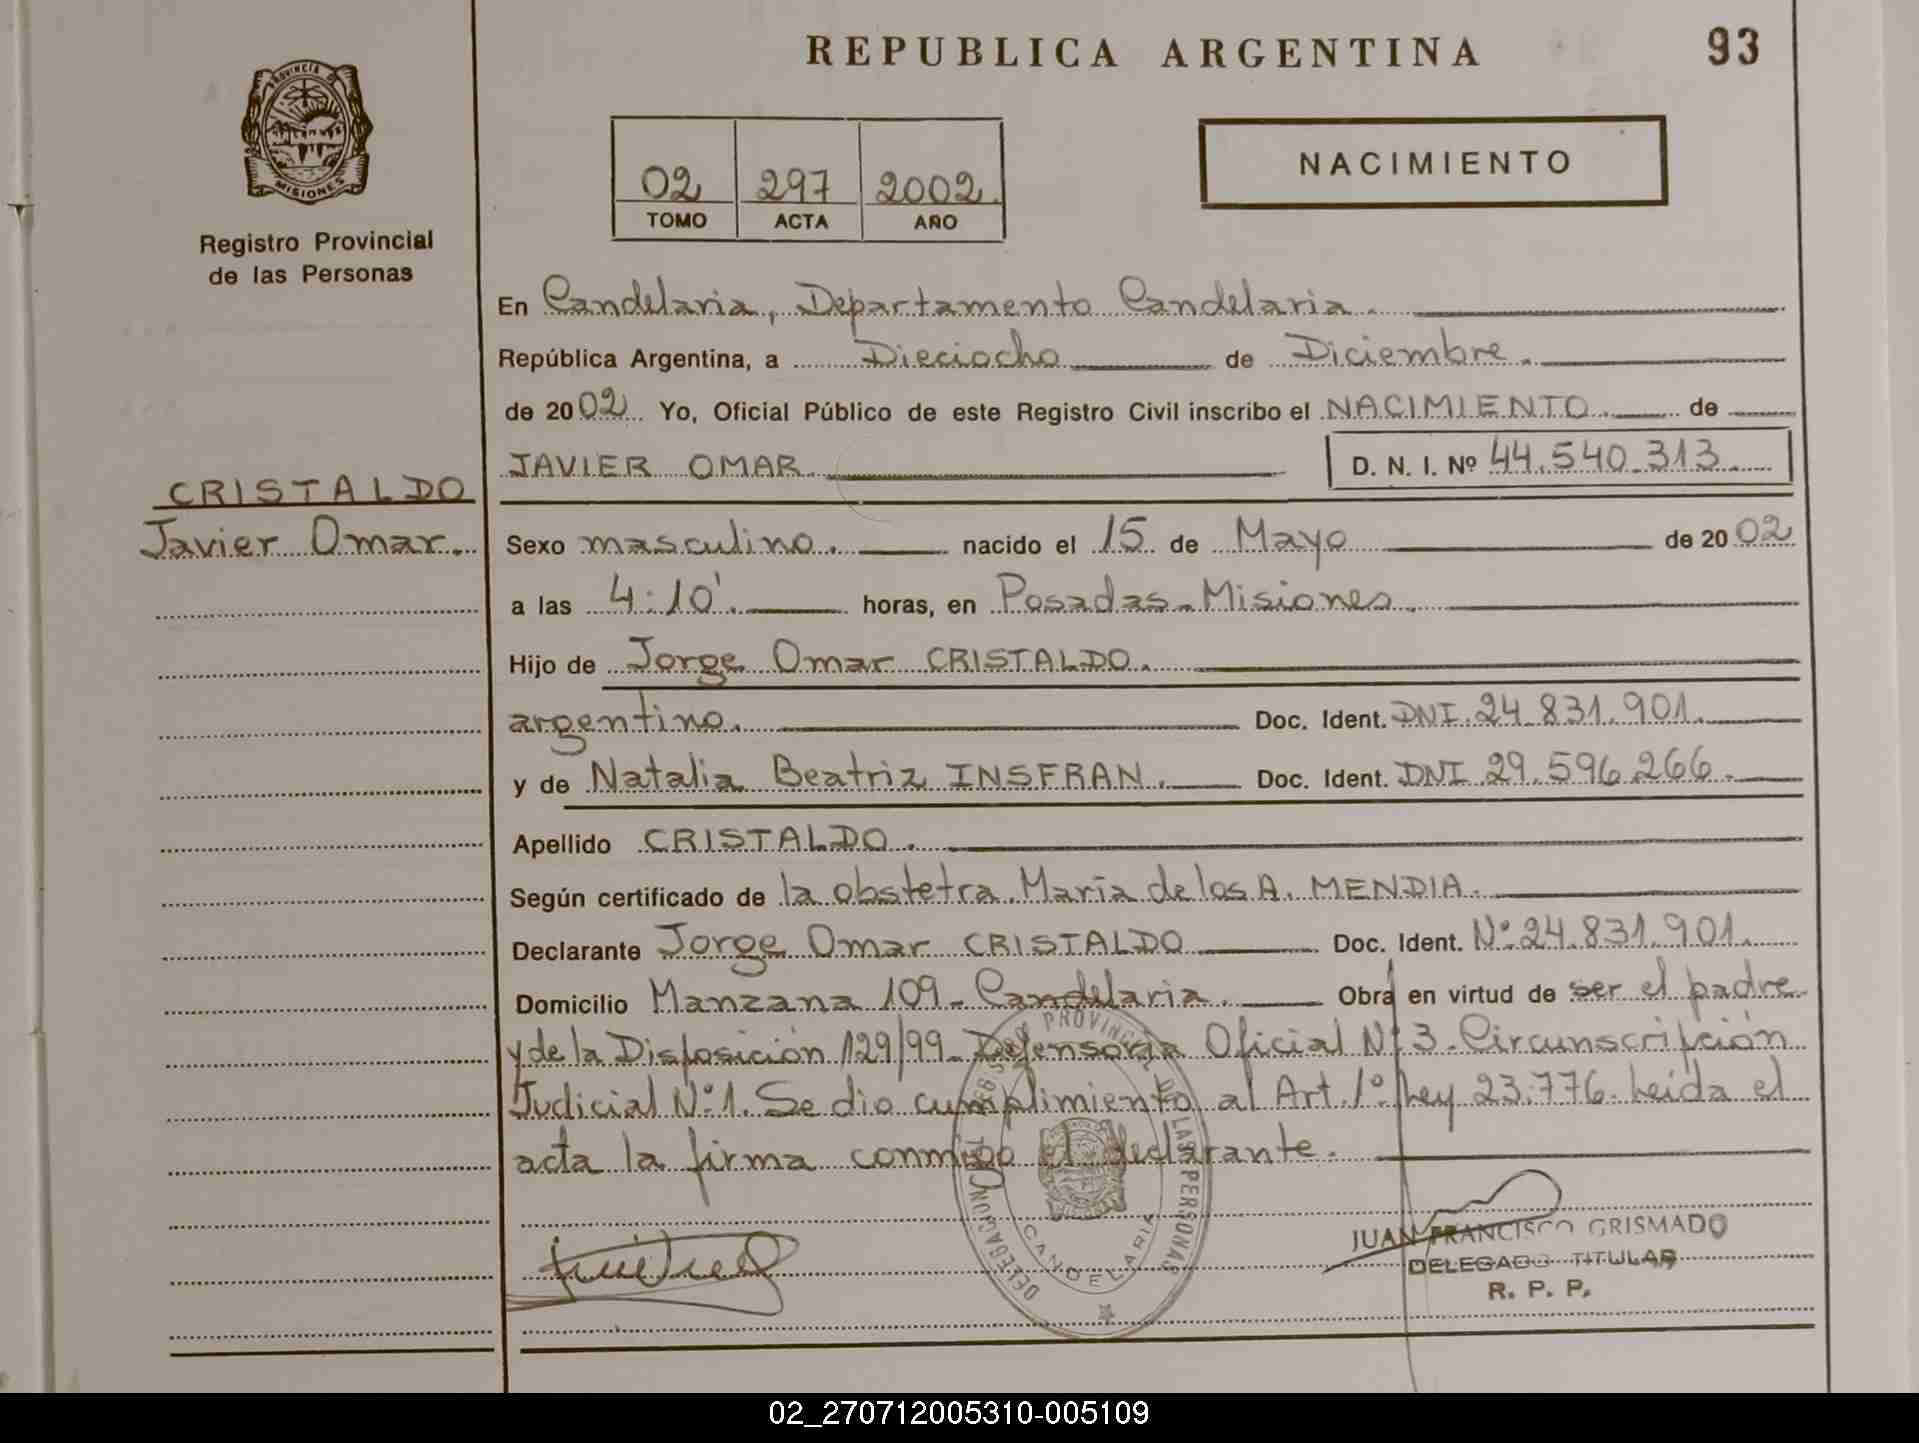 REPUBLICA ARGENTINA
93
PROVINCIA DE
MISIONES
Registro Provincial
de las Personas
02 297 2002
TOMO ACTA AÑO
NACIMIENTO
En Candelaria, Departamento Candelaria.
República Argentina, a Dieciocho de Diciembre.
de 2002 Yo, Oficial Público de este Registro Civil inscribo el NACIMIENTO. de
JAVIER OMAR.
D. N. I. Nº 44.540.313.
CRISTALDO
Javier Omar.
Sexo masculino. nacido el 15 de Mayo de 2002
a las 4:10'. horas, en Posadas - Misiones.
Hijo de Jorge Omar CRISTALDO.
argentino. Doc. Ident. DNI. 24.831.901.
y de Natalia Beatriz INSFRAN. Doc. Ident. DNI 29.596.266.
Apellido CRISTALDO.
Según certificado de la obstetra. María de los A. MENDIA.
Declarante Jorge Omar CRISTALDO Doc. Ident. Nº 24.831.901.
Domicilio Manzana 109 - Candelaria. Obra en virtud de ser el padre
y de la Disposición 129/99 - Defensoría Oficial Nº 3. Circunscripción
Judicial Nº 1. Se dio cumplimiento al Art. 1º. Ley 23.776. Leida el
acta la firma conmigo el declarante.
REGISTRO PROVINCIAL DE LAS PERSONAS
DELEGACION
CANDELARIA
JUAN FRANCISCO GRISMADO
DELEGADO TITULAR
R. P. P.
02_270712005310-005109